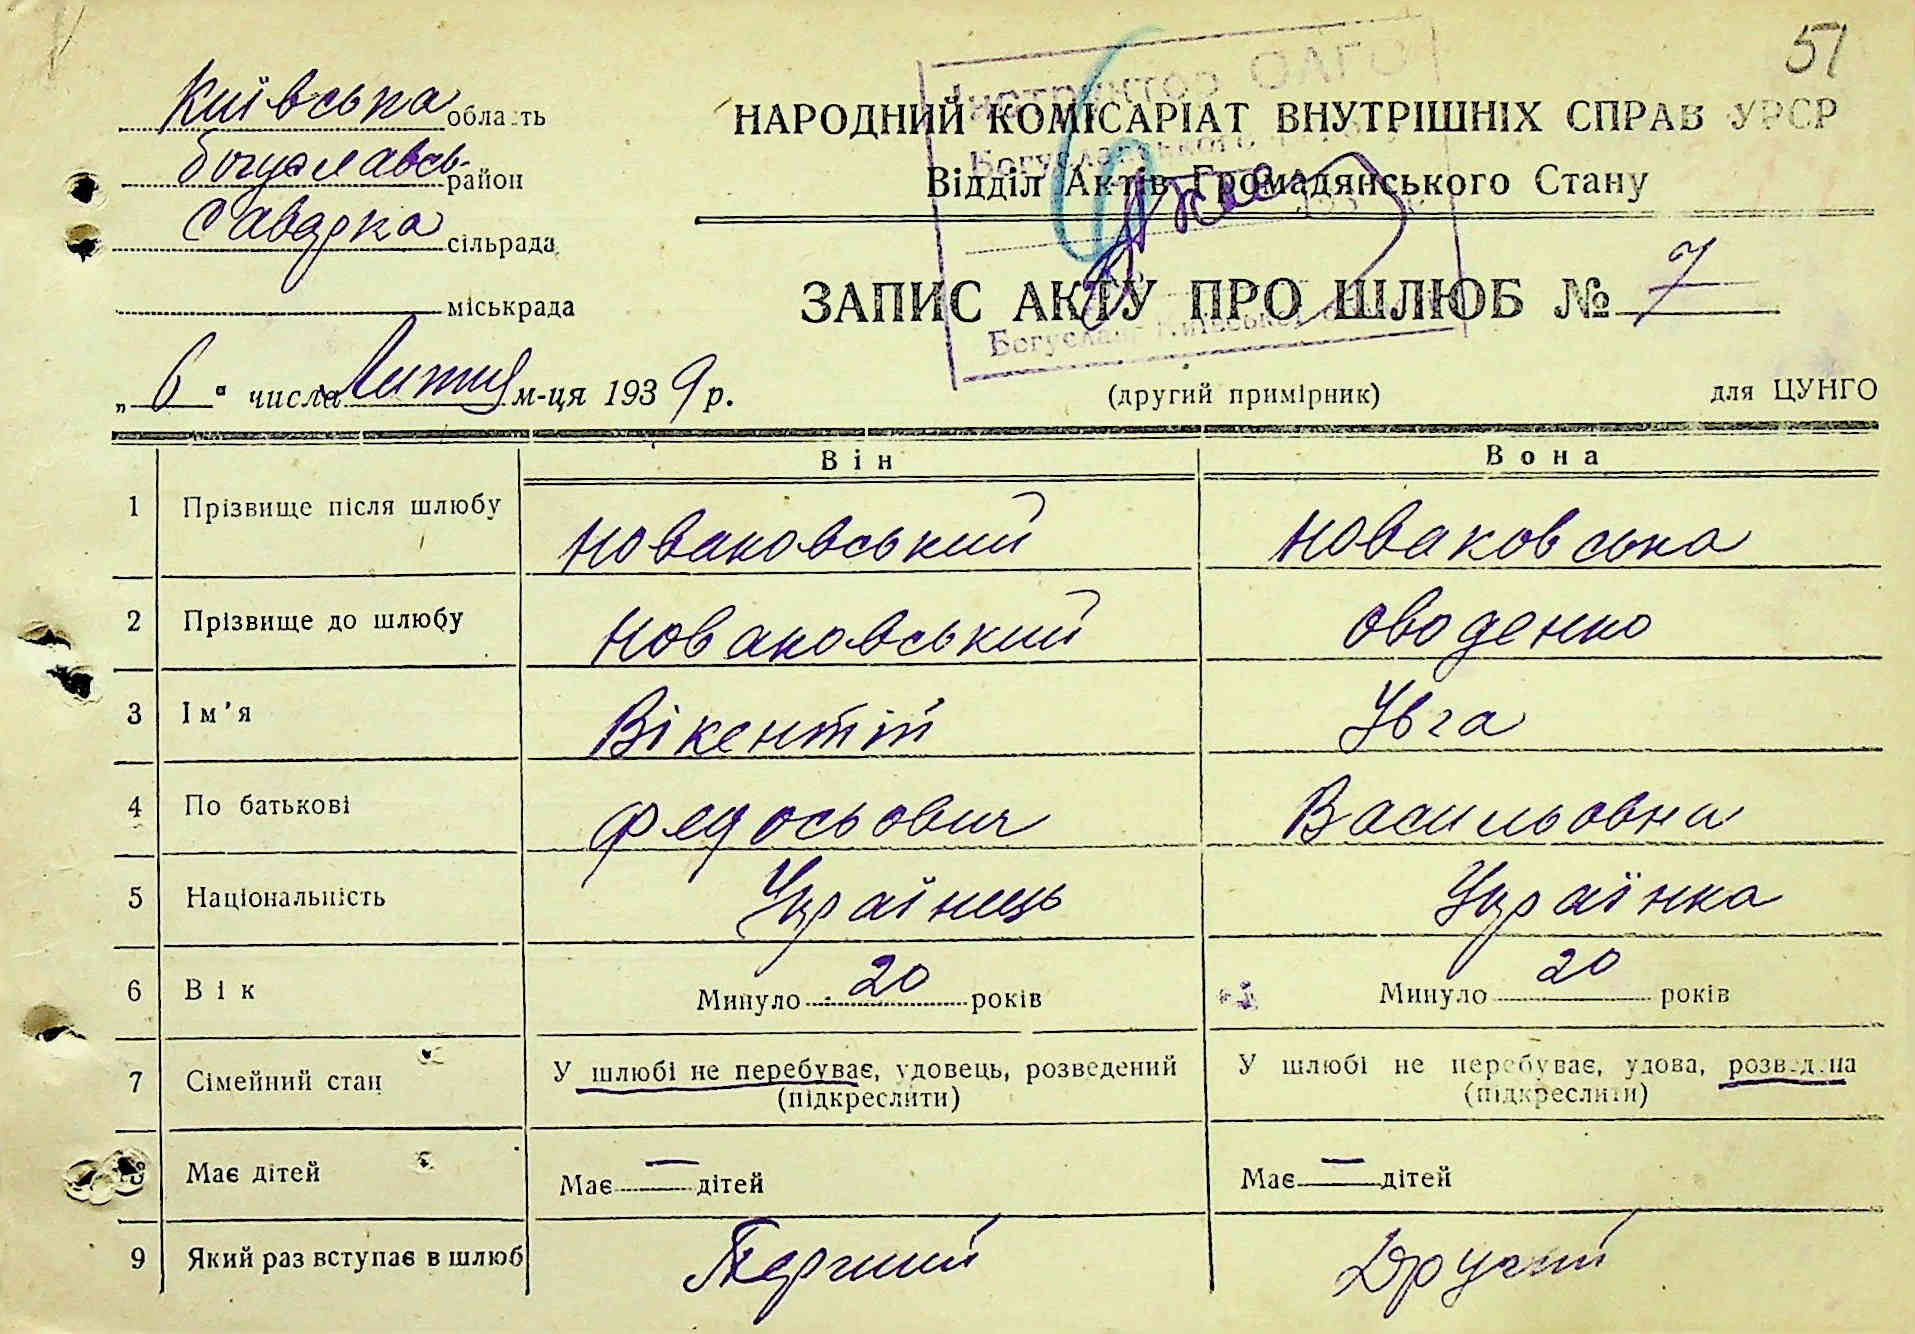 51
Київська область
Богуславсь- район
Саварка сільрада
міськрада
НАРОДНИЙ КОМІСАРІАТ ВНУТРІШНІХ СПРАВ УРСР
Відділ Актів Громадянського Стану
Інструктор ОАГС
Богуславського
Богуслав, Київської
ЗАПИС АКТУ ПРО ШЛЮБ № 7
„ 6 " числа Лютня м-ця 1939 р.
(другий примірник)
для ЦУНГО
Він
Вона
1 Прізвище після шлюбу Новаковський Новаковська
2 Прізвище до шлюбу Новаковський Оводенко
3 Ім'я Вікентій Увга
4 По батькові Федосьович Васильовна
5 Національність Українець Українка
6 Вік Минуло 20 років Минуло 20 років
7 Сімейний стан У шлюбі не перебуває, удовець, розведений У шлюбі не перебуває, удова, розведена
(підкреслити) (підкреслити)
8 Має дітей Має — дітей Має — дітей
9 Який раз вступає в шлюб Перший Другий